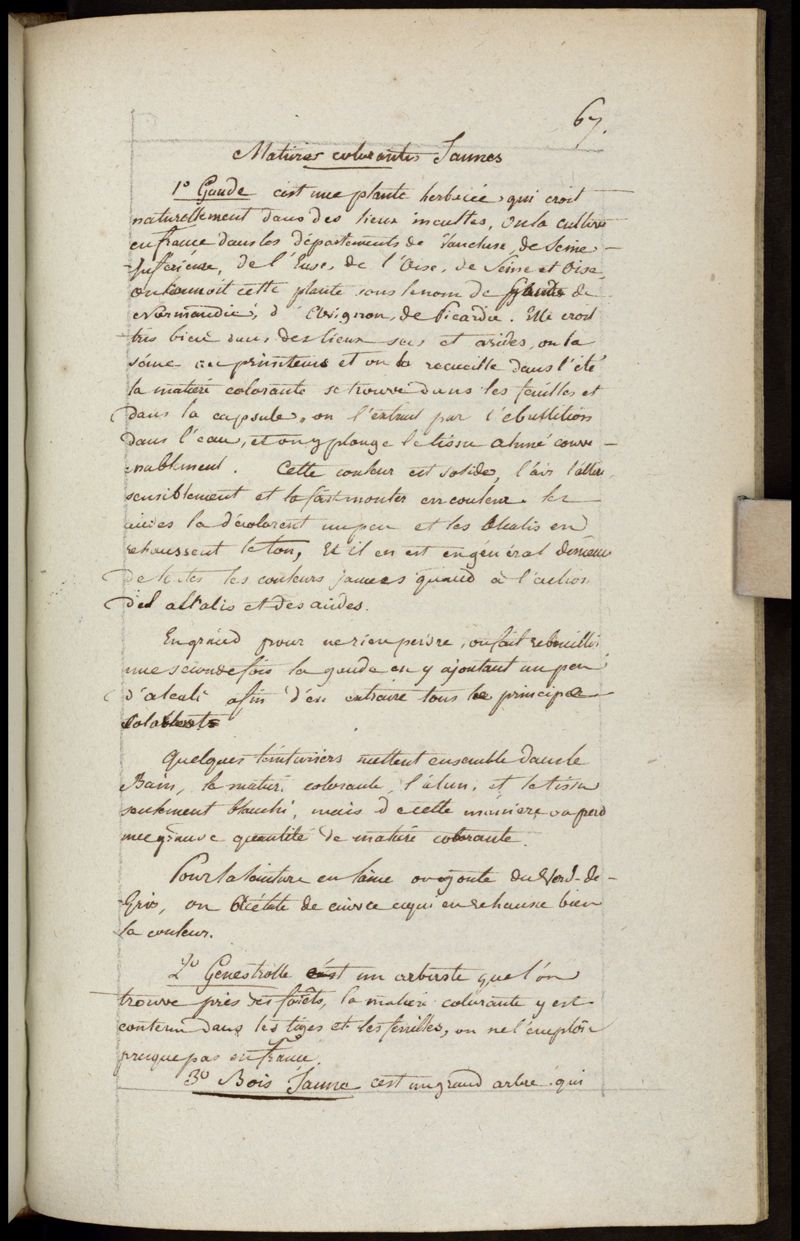 67.
Matieres colorantes Jaunes
1º Gaude c'est une plante herbacée, qui croit
naturellement dans des lieux incultes, on la cultive
en france dans les départements de Vaucluse, de Seine
Inférieure, de l'Eure, de l'Oise, de Seine et Oise
on connoit cette plante sous le nom de gaude de
Normandie, d'Avignon, de Picardie. Elle croit
très bien dans des lieux secs et arides, on la
sême au printems et on la recueille dans l'été
la matiere colorante se trouve dans les feuilles et
dans la capsule, on l'extrait par l'ebullition
dans l'eau, et on y plonge le tissu aluné conve-
nablement. Cette couleur est solide, l'air l'altère
sensiblement et la fait monter en couleur. les
acides la décolorent un peu et les Alcalis en
rehaussent le ton, Et il en est en général de même
de toutes les couleurs jaunes quand à l'action
des alkalis et des acides.
En grand pour ne rien perdre, on fait rebouillir
une seconde fois la gaude en y ajoutant un peu
d'alcali afin d'en extraire tous le principe
colorant
Quelques teinturiers mettent ensemble dans le
Bain, la matiere colorante, l'alun, et le tissu
seulement blanchi, mais de cette manière on perd
une grande quantité de matiere colorante.
Pour la teinture en laine on ajoute du Verd-de-
Gris, ou Acétate de cuivre ce qui en rehausse bien
la couleur.
2º Genestrolle c'est un arbuste que l'on
trouve près des forêts, la matiere colorante y est
contenu dans les tiges et les feuilles, on ne l'emploie
presque pas en France.
3º Bois Jaune c'est un grand arbre qui